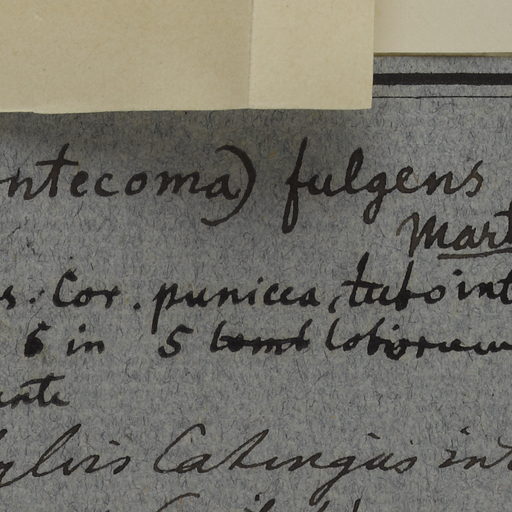 ntecoma) fulgens
Mart
s. Cor. punicea, tubo int
6 in 5 loborum
ante
ylvis Catingas int